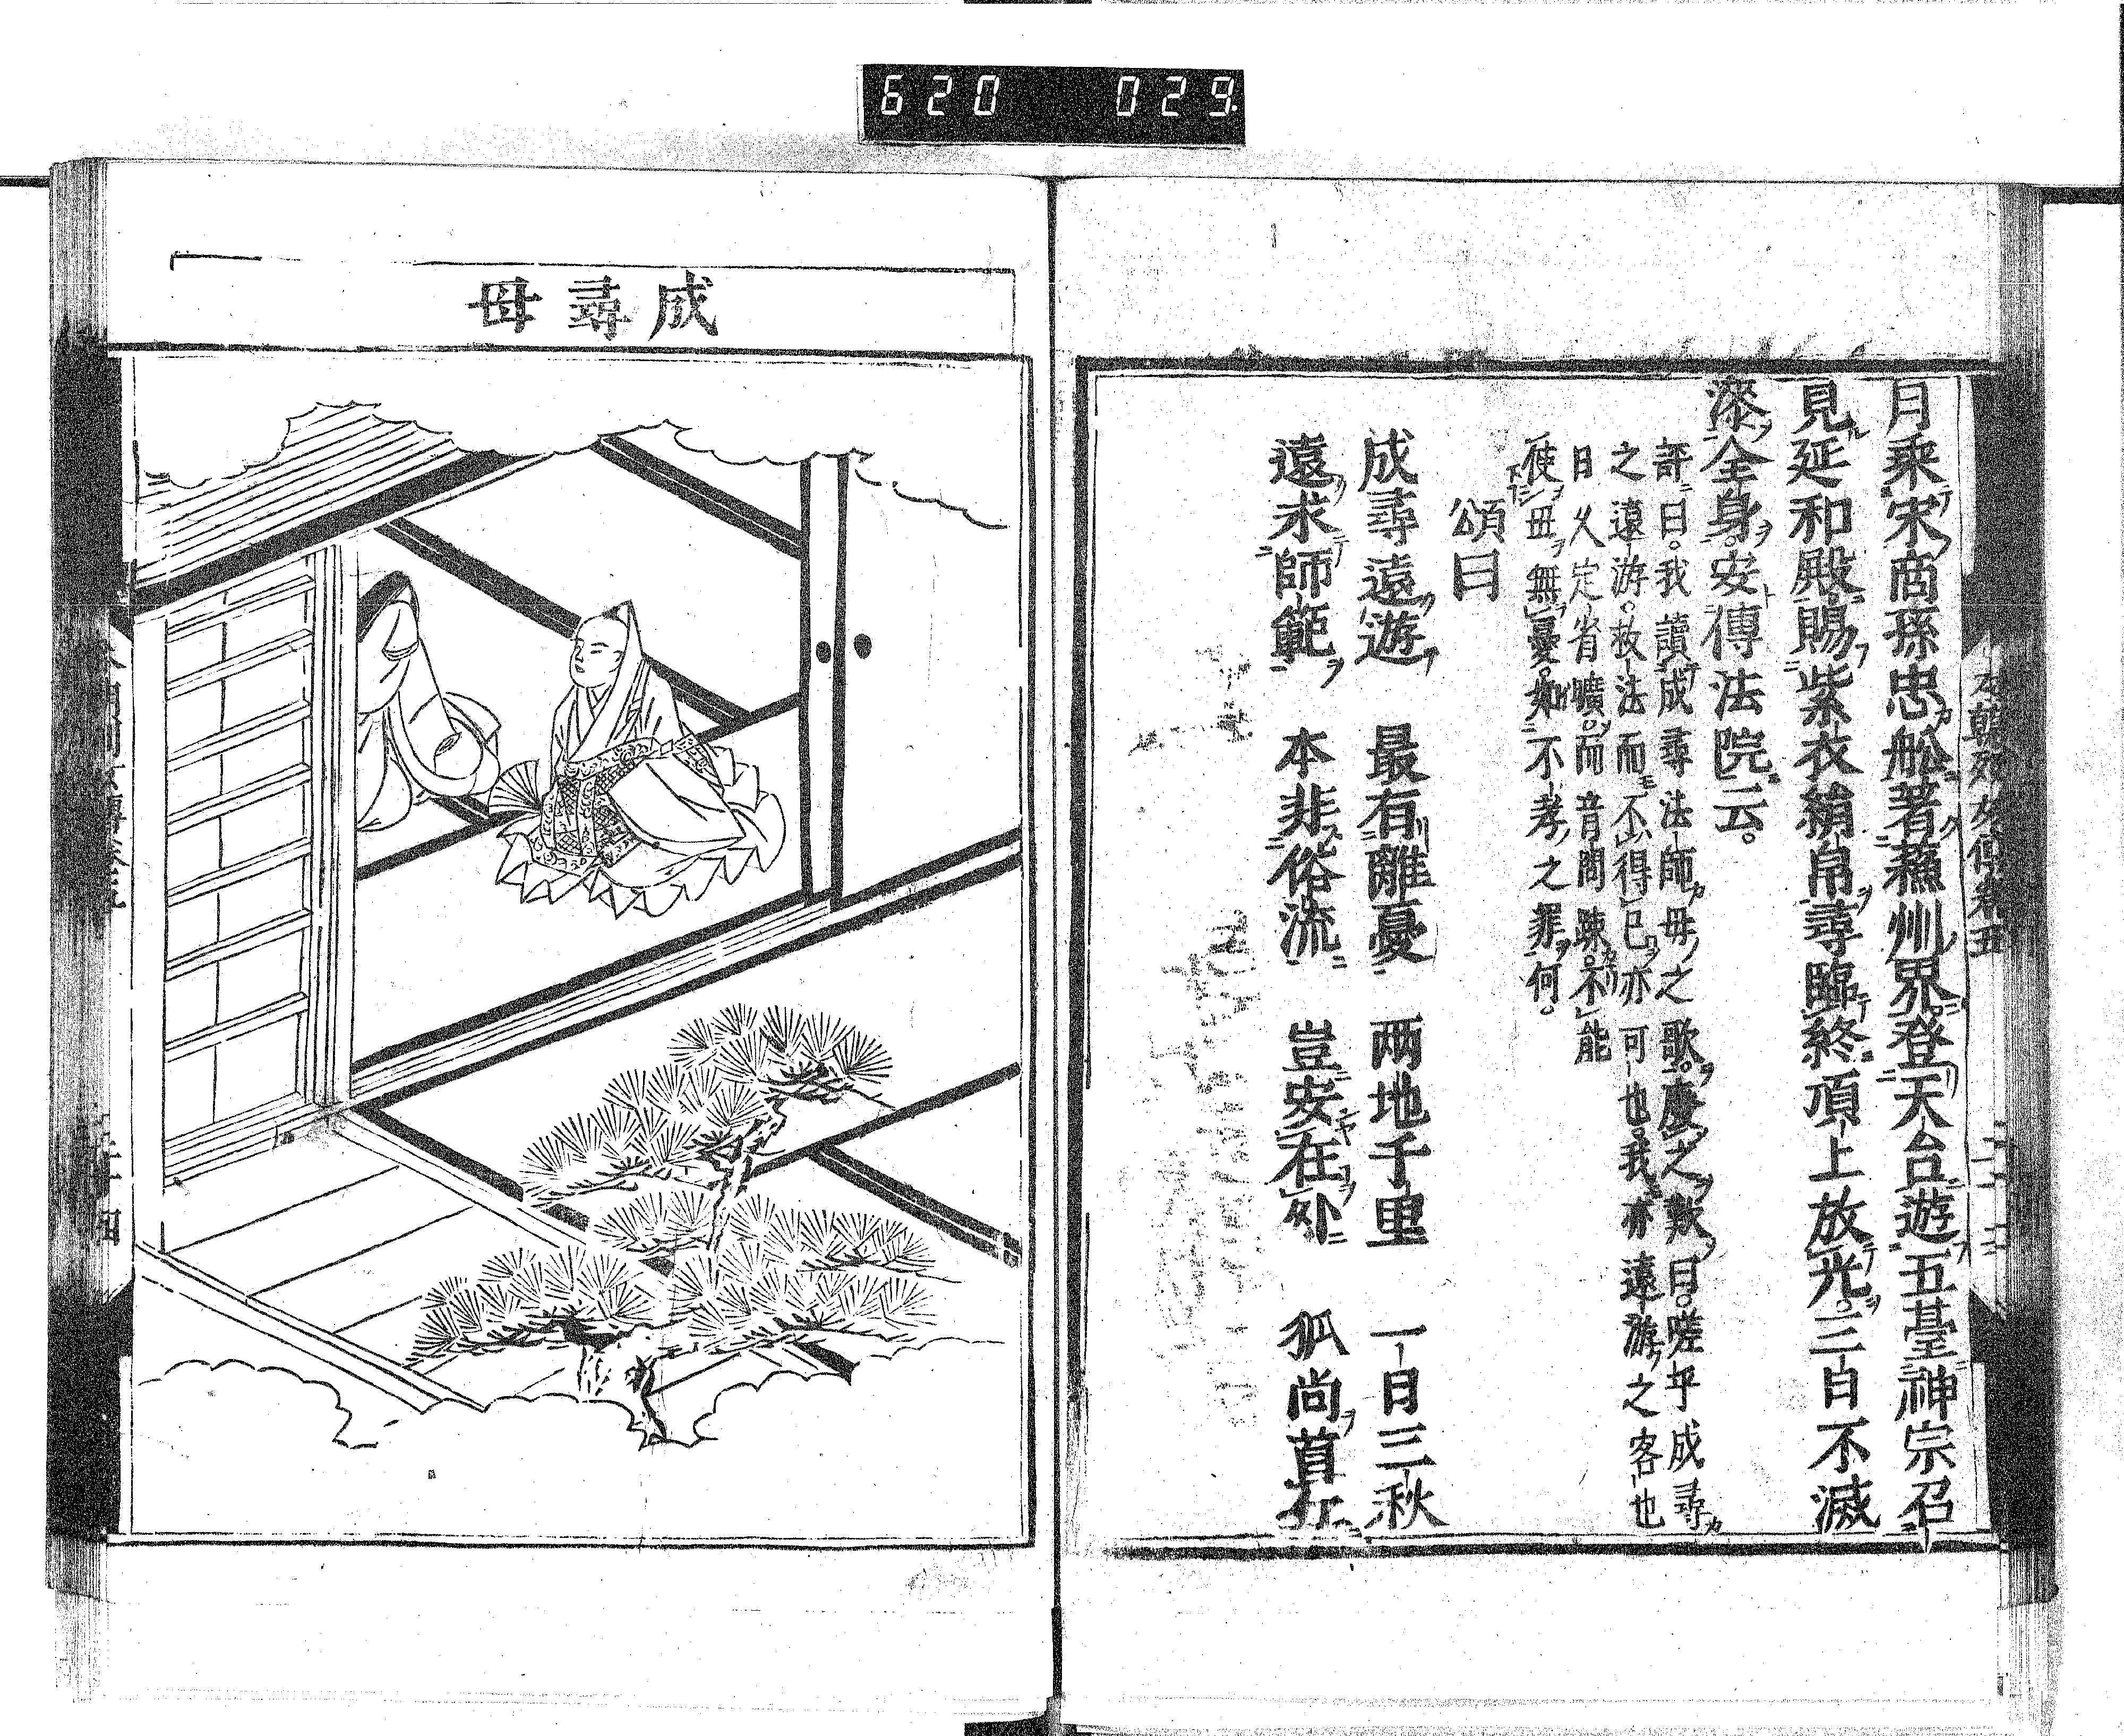 620 029
月乘宋商孫忠舩著蘇州界登天台遊五臺神宗召
見延和殿賜紫衣絹帛尋臨終頂上放光三日不滅
漆全身安傳法院云
評曰我讀成尋法師母之歌慶之歎曰嗟乎成尋
之遠游救法而不得已亦可也我亦遠游之客也
日久定省曠而音問踈不能
使母無憂如不考之罪何
頌曰
成尋遠遊 最有離憂 两地千里 一日三秋
遠求師範 本非俗流 豈安在外 狐尚首丘
本朝列女傳卷五
成尋母